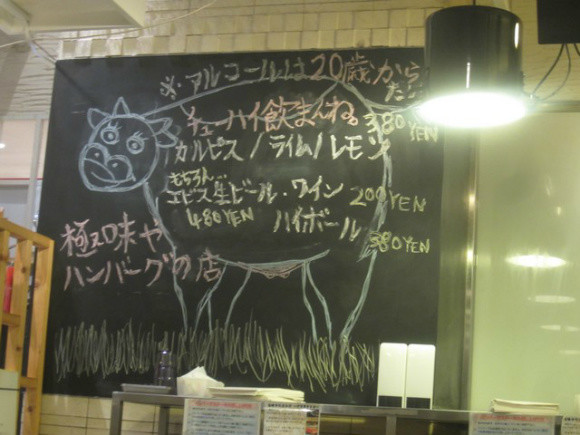 ※アルコールは20歳から
だ
チューハイ飲まんね。380YEN
カルピス/ライム/レモン
もちろん
エビス生ビール・ワイン 200YEN
480YEN ハイボール 380YEN
極味や
ハンバーグの店